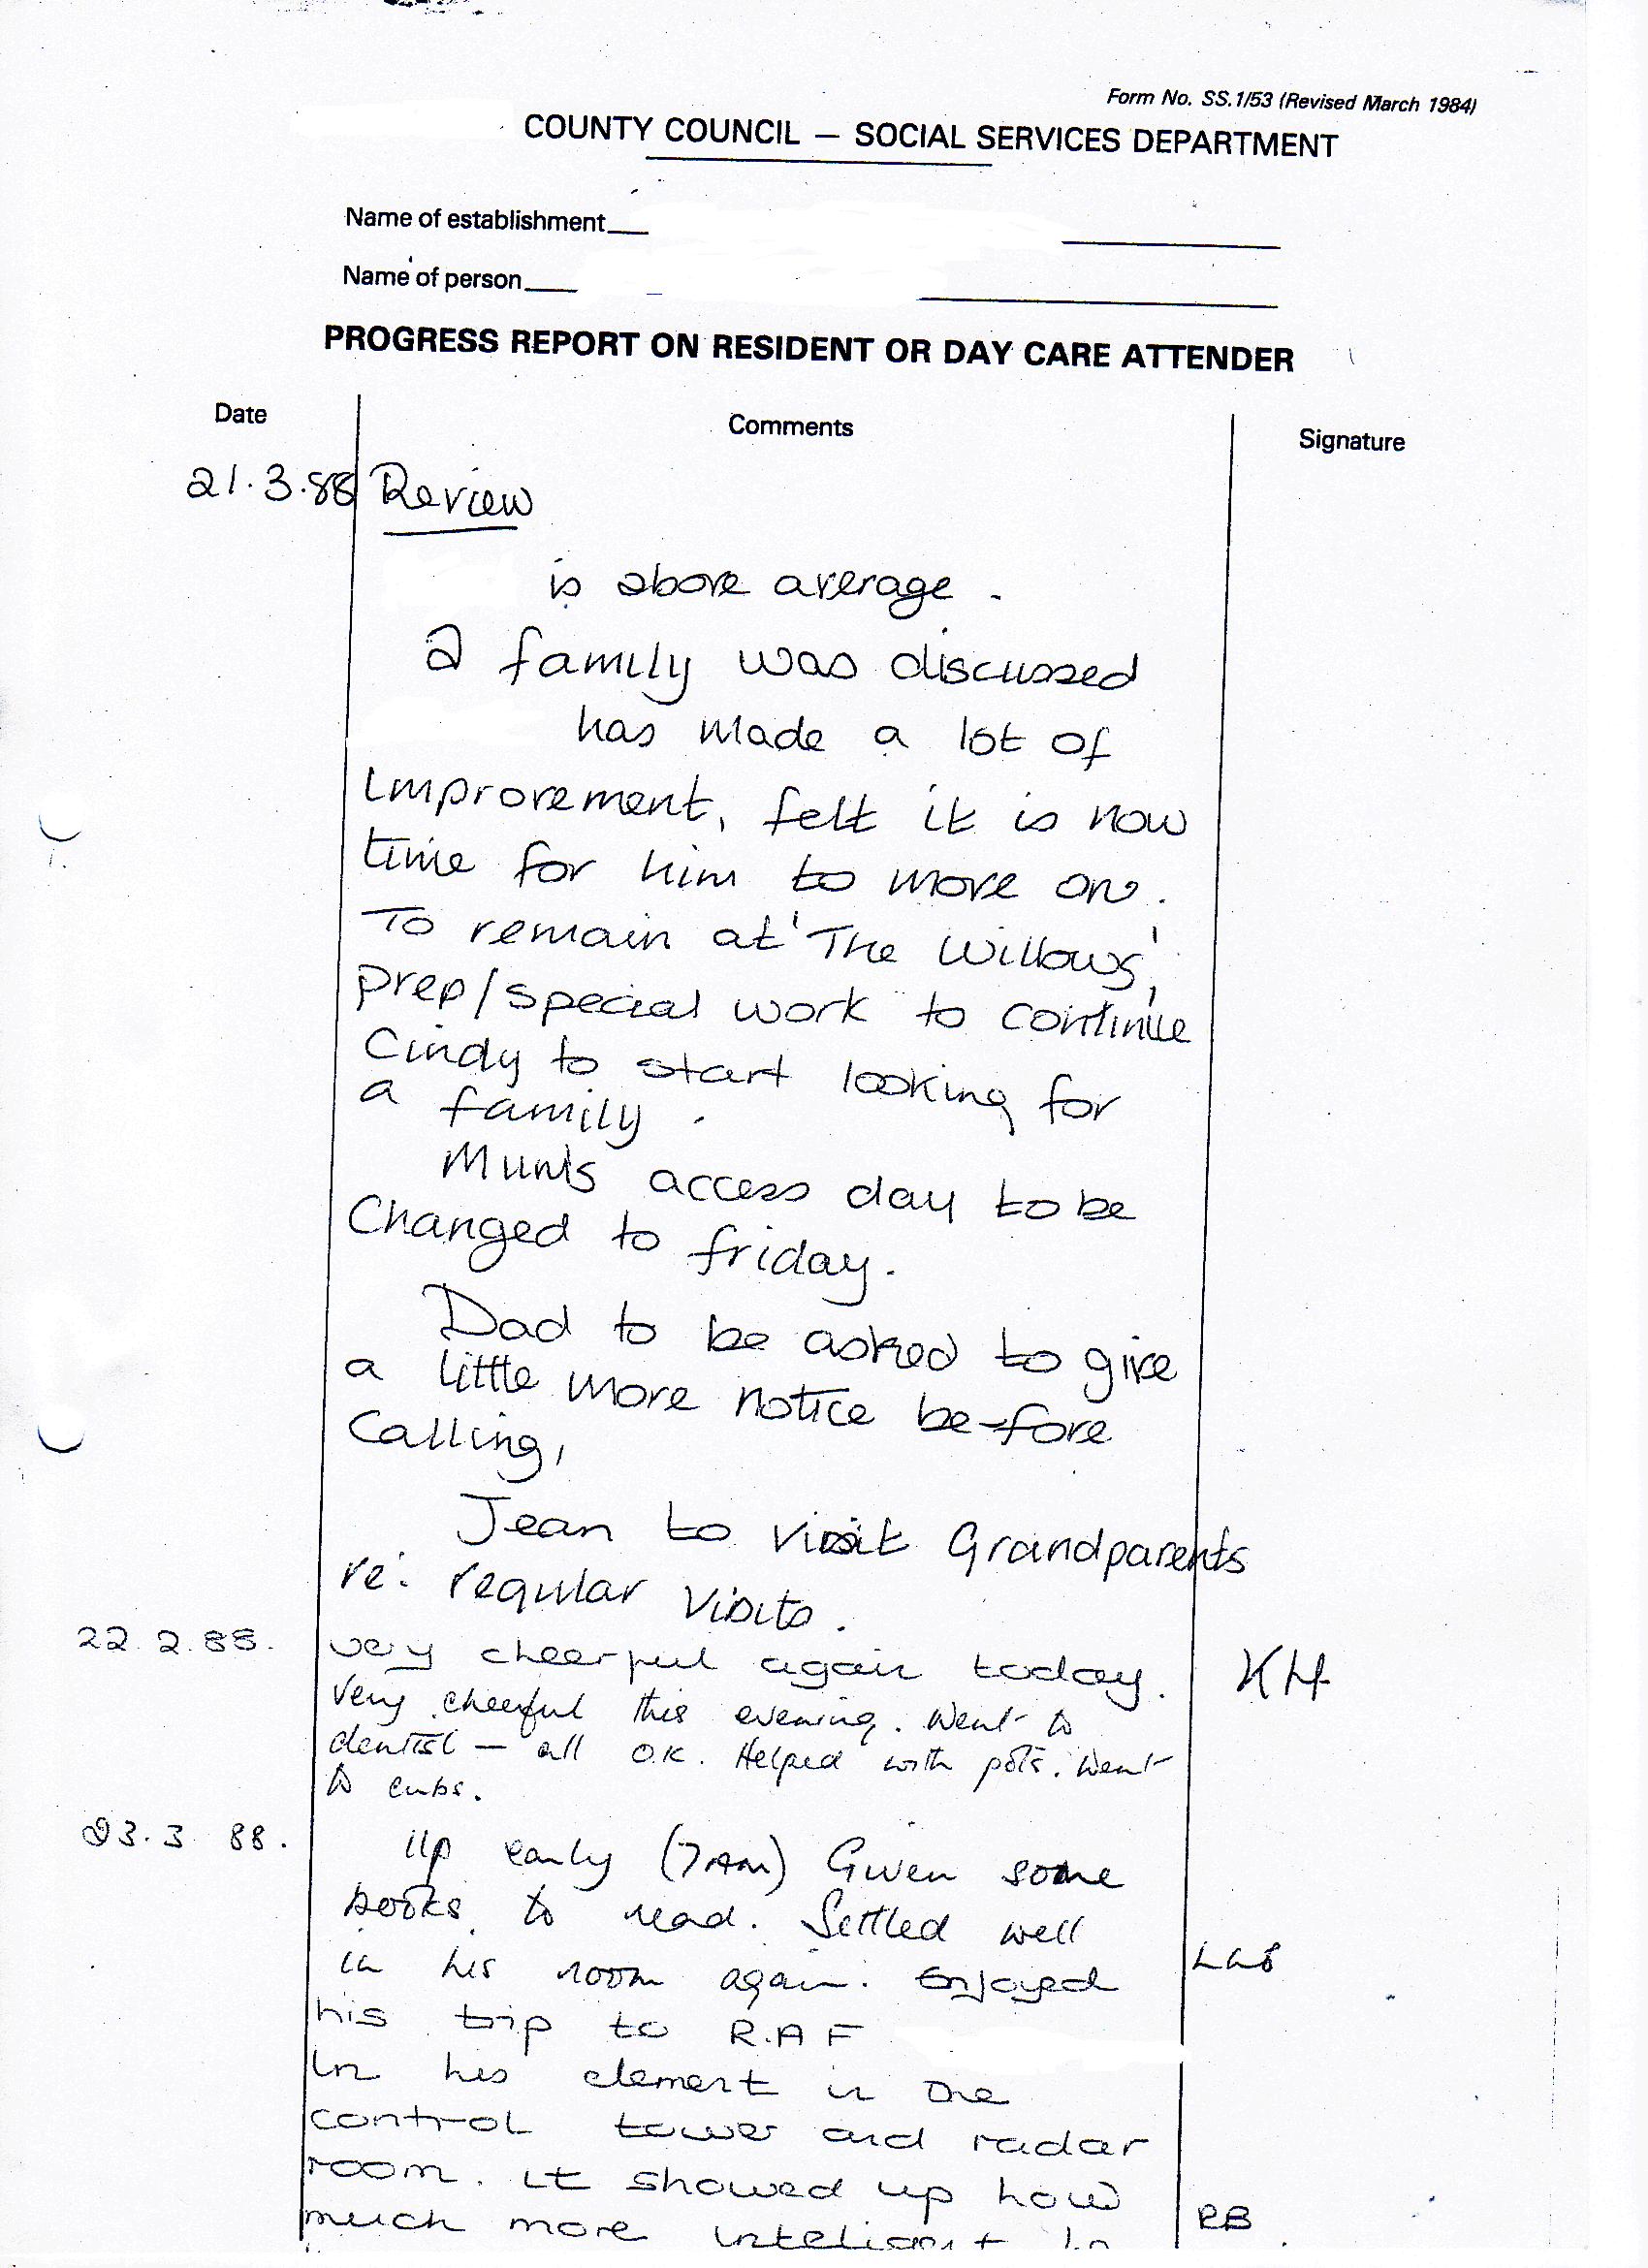 Form No. SS.1/53 (Revised March 1984)
COUNTY COUNCIL — SOCIAL SERVICES DEPARTMENT
Name of establishment
Name of person
PROGRESS REPORT ON RESIDENT OR DAY CARE ATTENDER
Date Comments Signature
21.3.88 Review
is above average.
A family was discussed
has made a lot of
Improvement, felt it is now
time for him to move on.
To remain at 'The Willows',
prep/special work to continue
Cindy to start looking for
a family.
Mum's access day to be
Changed to friday.
Dad to be asked to give
a little more notice be-fore
Calling,
Jean to visit Grandparents
re: regular visits.
22.2.88. very cheerful again today. KH
Very cheerful this evening. Went to
dentist — all O.K. Helped with pots. Went
to cubs.
23.3 88. Up early (7AM) Given some
books to read. Settled well
in his room again. Enjoyed
his trip to R.A F
In his element in the
control tower and radar
room. It showed up how
much more inteligent he RB